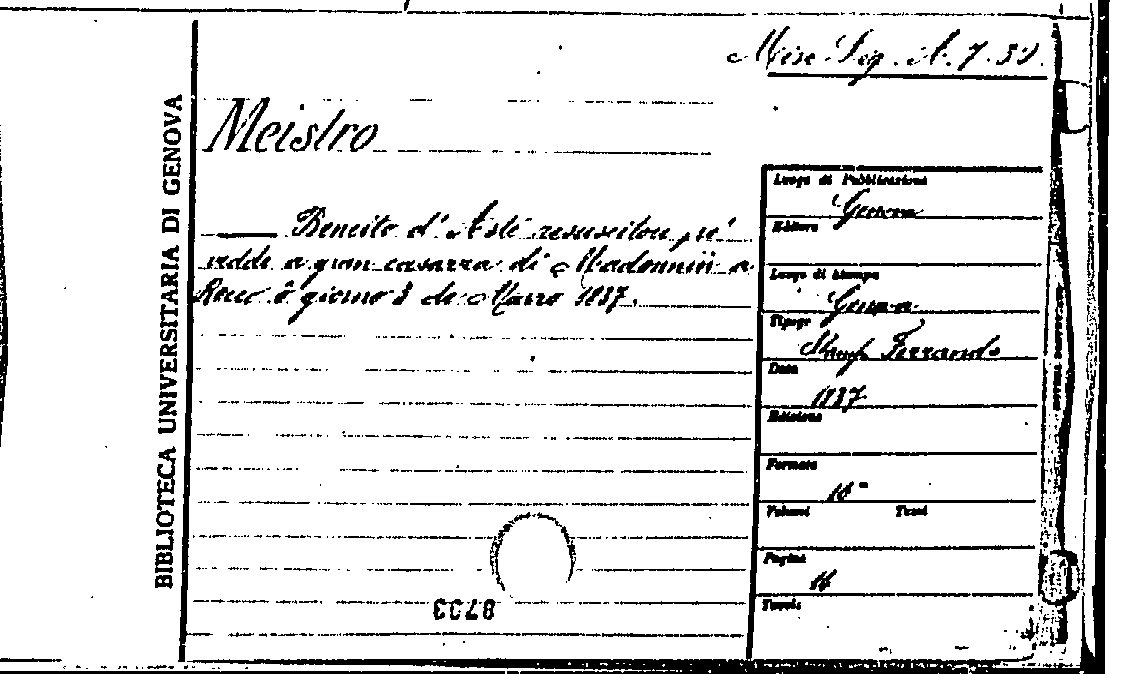 Misc. Lig. A. 7. 30.
Meistro
Beneito d' Asté resuscitou pe'
vedde a gran casassa di Madonnin a
Recco ô giorno 3 de Marzo 1837.
BIBLIOTECA UNIVERSITARIA DI GENOVA
Luogo di Pubblicazione
Genova
Editore
Luogo di Stampa
Genova
Tipogr
Stamp. Ferrando
Data
1837
Edizione
Formato
16°
Volumi Tomi
Pagine
16
Tavole
8703